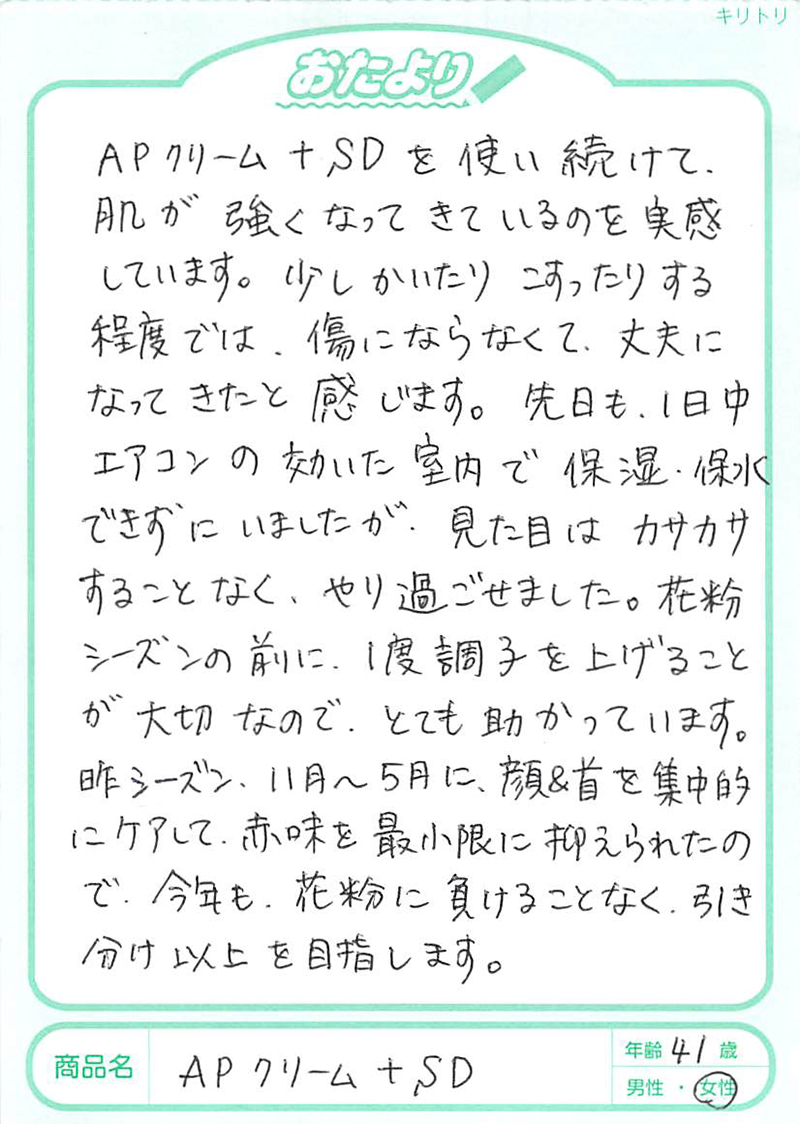 キリトリ
おたより
APクリーム+SDを使い続けて、
肌が強くなってきているのを実感
しています。少しかいたりこすったりする
程度では、傷にならなくて、丈夫に
なってきたと感じます。先日も、1日中
エアコンの効いた室内で保湿・保水
できずにいましたが、見た目はカサカサ
することなく、やり過ごせました。花粉
シーズンの前に、1度調子を上げること
が大切なので、とても助かっています。
昨シーズン、11月〜5月に、顔&首を集中的
にケアして、赤味を最小限に抑えられたの
で、今年も、花粉に負けることなく、引き
分け以上を目指します。
商品名 APクリーム+SD
年齢 41 歳
男性・女性